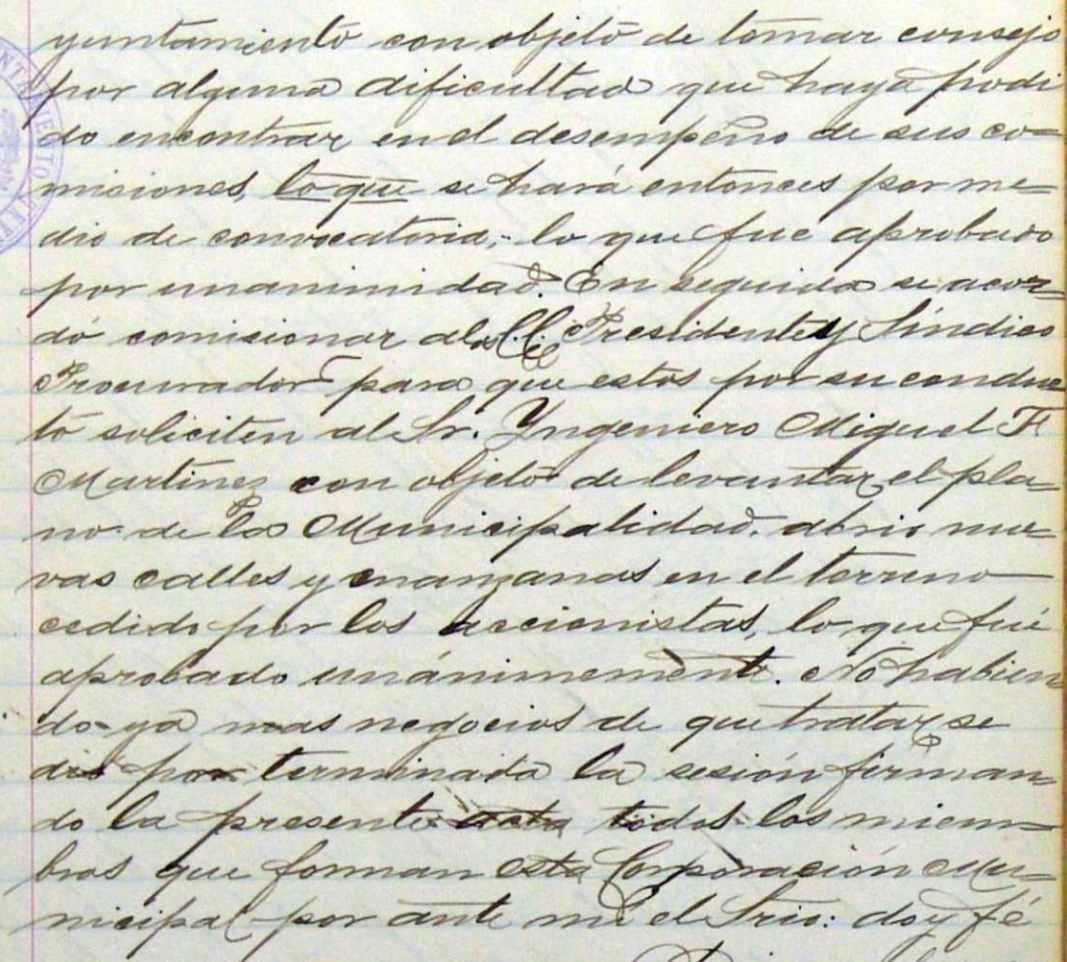 yuntamiento con objeto de tomar consejo
por alguna dificultad que haya podi
do encontrar en el desempeño de sus co=
misiones, lo que se hará entonces por me=
dio de convocatoria; lo que fue aprobado
por unanimidad. En seguida se acor=
dó comisionar a los C.C. Presidente y Síndico
Procurador para que estos por su conduc
to soliciten al Sr. Yngeniero Miguel F
Martínez con objeto de levantar el pla=
no de la Municipalidad, abrir nue=
vas calles y manzanas en el terreno
cedido por los accionistas, lo que fué
aprobado unánimemente. No habien
do ya mas negocios de que tratar se
dió por terminada la sesión firman=
do la presente acta todos los miem=
bros que forman esta Corporación Mu=
nicipal por ante mi el Srio: doy fé